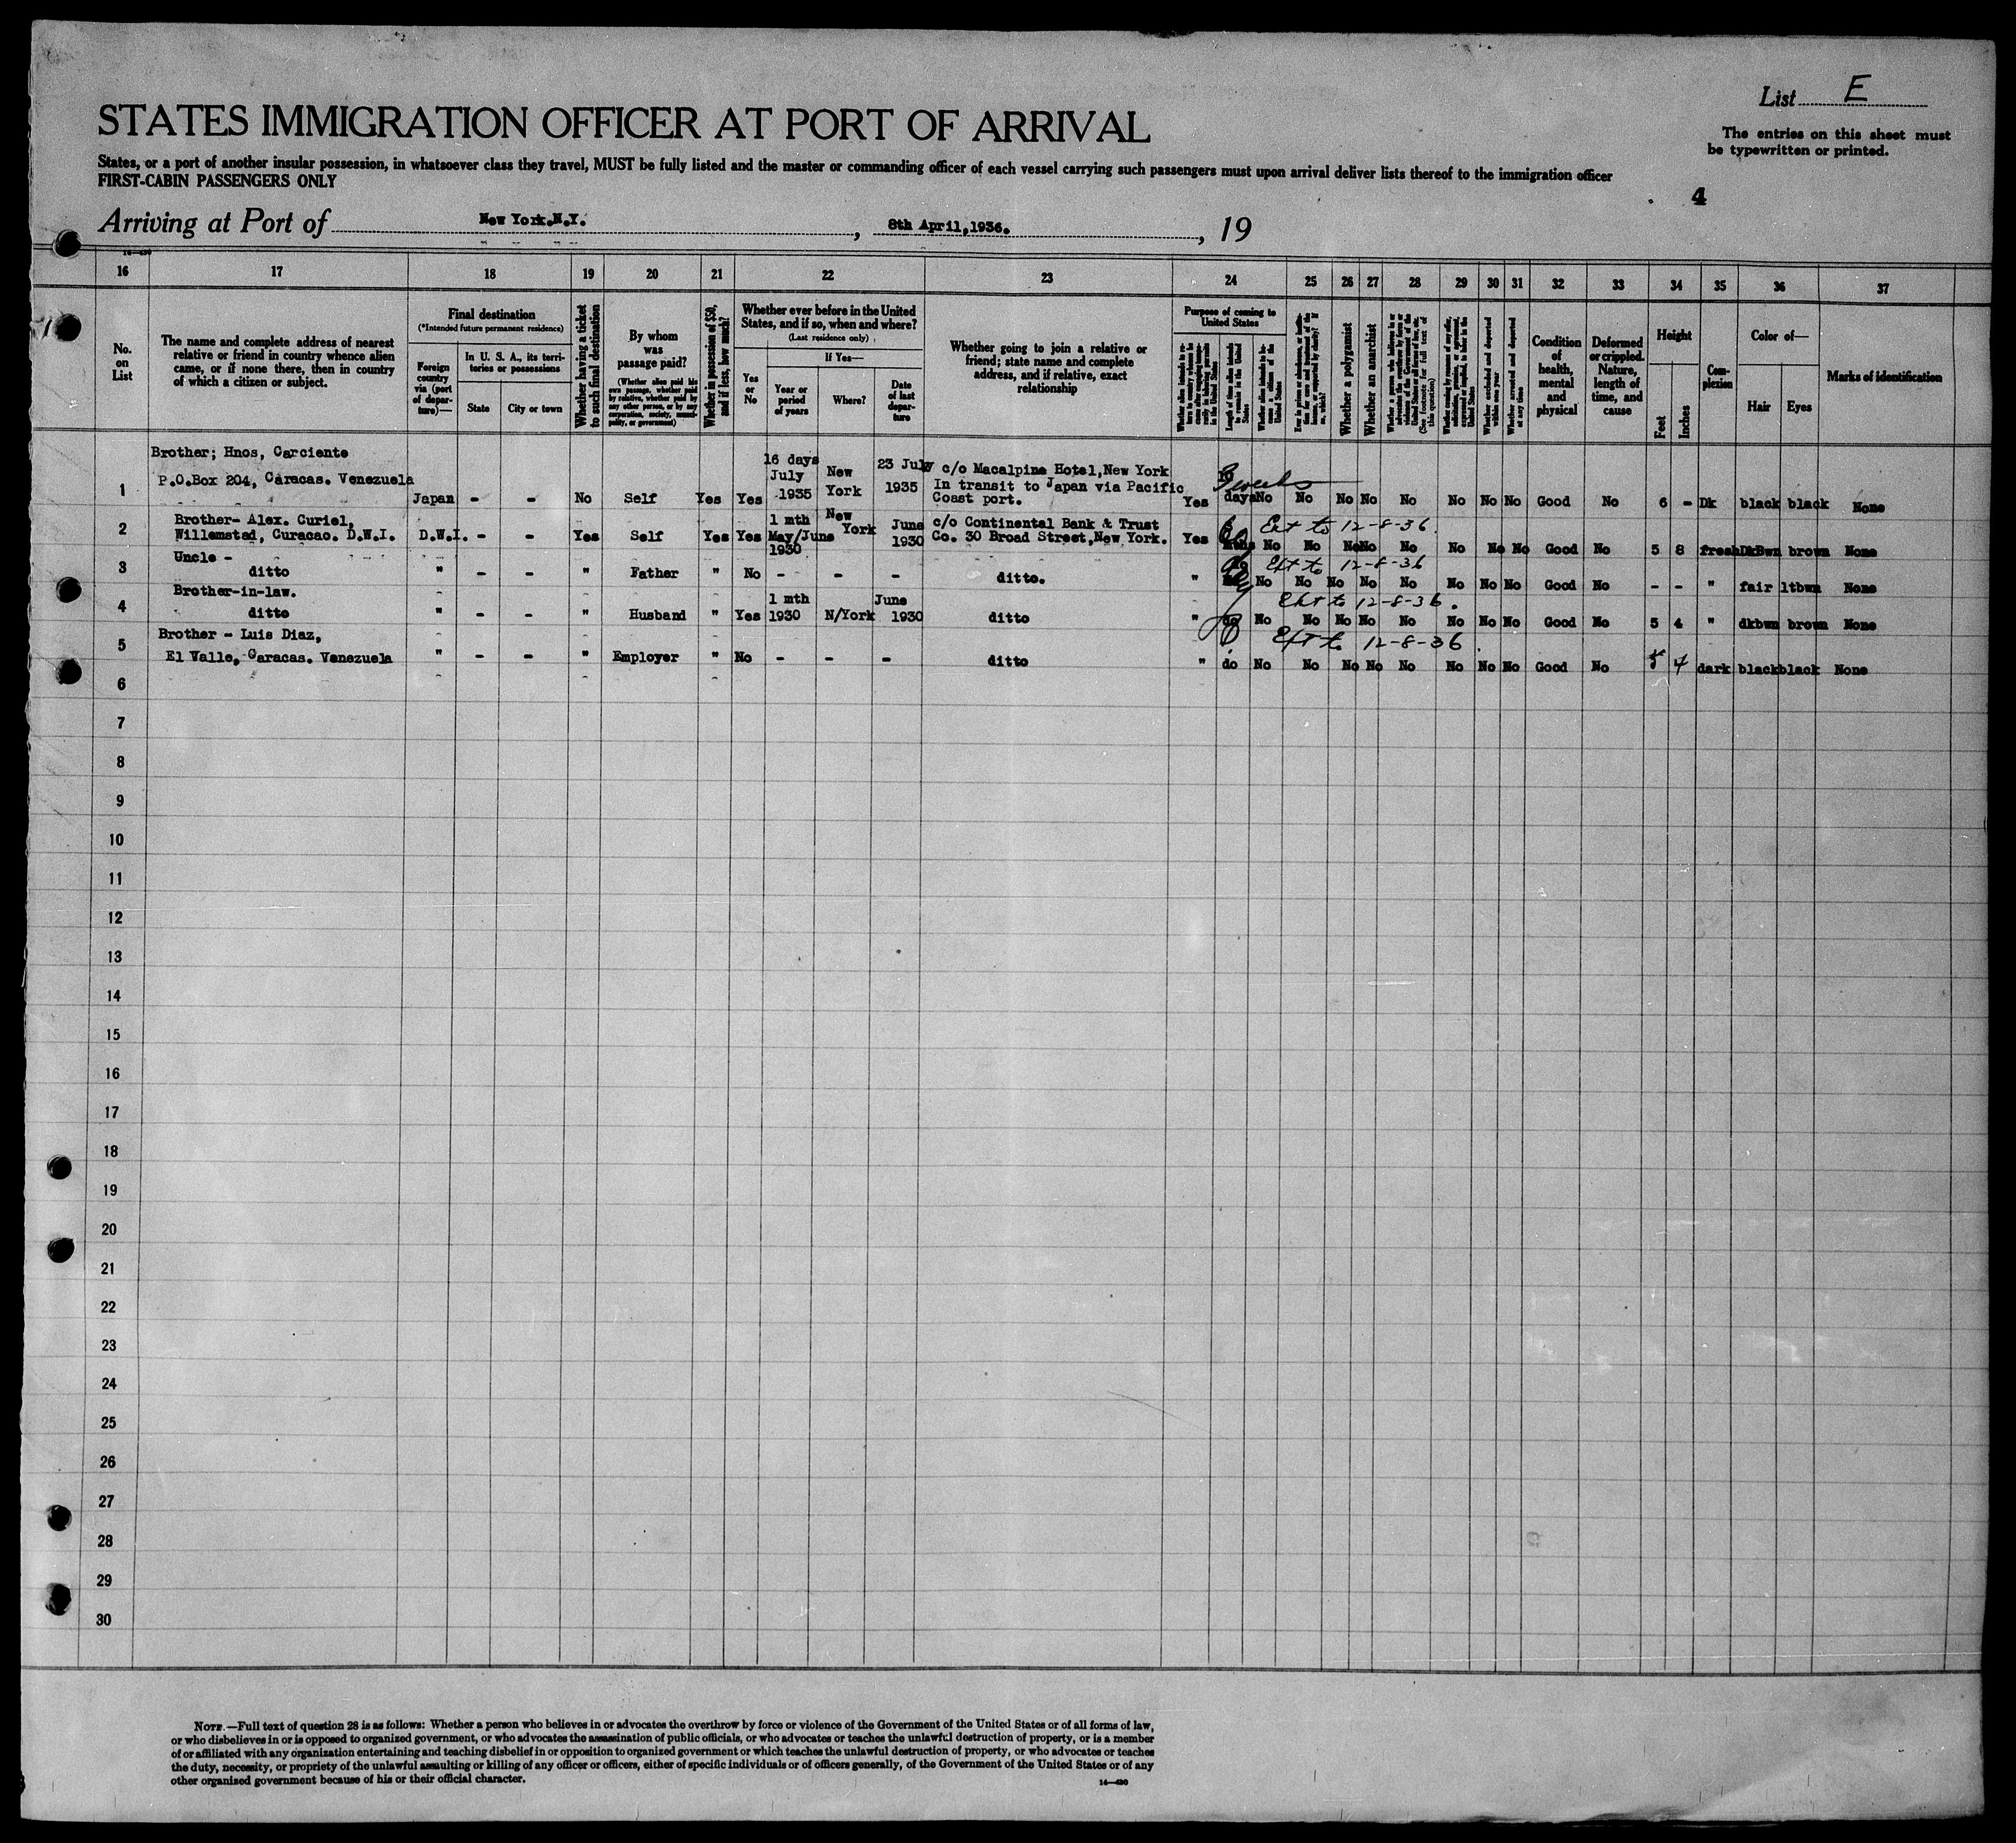 List E
STATES IMMIGRATION OFFICER AT PORT OF ARRIVAL
The entries on this sheet must
be typewritten or printed.
States, or a port of another insular possession, in whatsoever class they travel, MUST be fully listed and the master or commanding officer of each vessel carrying such passengers must upon arrival deliver lists thereof to the immigration officer
FIRST-CABIN PASSENGERS ONLY
4
Arriving at Port of New York.N.Y. , 8th April,1936. , 19
16 17 18 19 20 21 22 23 24 25 26 27 28 29 30 31 32 33 34 35 36 37
No.
on
List
The name and complete address of nearest
relative or friend in country whence alien
came, or if none there, then in country
of which a citizen or subject.
Final destination
(*Intended future permanent residence)
Foreign
country
via (port
of depar-
ture)—
In U. S. A., its terri-
tories or possessions
State City or town
Whether having a ticket
to such final destination
By whom
was
passage paid?
(Whether alien paid his
own passage, whether paid
by relative, whether paid by
any other person, or by any
corporation, society, munici-
pality, or government)
Whether in possession of $50,
and if less, how much?
Whether ever before in the United
States, and if so, when and where?
(Last residence only)
Yes
or
No
If Yes—
Year or
period
of years
Where?
Date
of last
depar-
ture
Whether going to join a relative or
friend; state name and complete
address, and if relative, exact
relationship
Purpose of coming to
United States
Length of time alien intends
to remain in the United
States
Whether alien intends to be-
come a citizen of the
United States
Whether a polygamist
Whether an anarchist
(See footnote for full text of
this question)
Whether excluded and deported
within one year
Whether arrested and deported
at any time
Condition
of
health,
mental
and
physical
Deformed
or crippled.
Nature,
length of
time, and
cause
Height
Feet Inches
Com-
plexion
Color of—
Hair Eyes
Marks of identification
Brother; Hnos, Carciente
1 P.O.Box 204, Caracas. Venezuela Japan - - No Self Yes Yes 16 days July 1935 New York 23 July 1935 c/o Macalpine Hotel,New York
In transit to Japan via Pacific
Coast port. Yes 3 weeks days No No No No No No No No Good No 6 - Dk black black None
2 Brother- Alex. Curiel,
Willemstad, Curacao. D.W.I. D.W.I. - - Yes Self Yes Yes 1 mth May/June 1930 New York June 1930 c/o Continental Bank & Trust
Co. 30 Broad Street,New York. Yes Ext to 12-8-36. No No No No No No No No Good No 5 8 fresh DkBwn brown None
Uncle -
3 ditto " - - " Father " No - - - ditto. " Ext to 12-8-36 No No No No No No No No Good No - - " fair ltbwn None
Brother-in-law.
4 ditto " - - " Husband " Yes 1 mth 1930 N/York June 1930 ditto " Ext to 12-8-36. No No No No No No No No Good No 5 4 " dkbwn brown None
5 Brother - Luis Diaz,
El Valle, Caracas. Venezuela " - - " Employer " No - - - ditto " do Ext to 12-8-36. No No No No No No No No Good No 5 4 dark black black None
6
7
8
9
10
11
12
13
14
15
16
17
18
19
20
21
22
23
24
25
26
27
28
29
30
NOTE.—Full text of question 28 is as follows: Whether a person who believes in or advocates the overthrow by force or violence of the Government of the United States or of all forms of law,
or who disbelieves in or is opposed to organized government, or who advocates the assassination of public officials, or who advocates or teaches the unlawful destruction of property, or is a member
of or affiliated with any organization entertaining and teaching disbelief in or opposition to organized government or which teaches the unlawful destruction of property, or who advocates or teaches
the duty, necessity, or propriety of the unlawful assaulting or killing of any officer or officers, either of specific individuals or of officers generally, of the Government of the United States or of any
other organized government because of his or their official character.
14—430